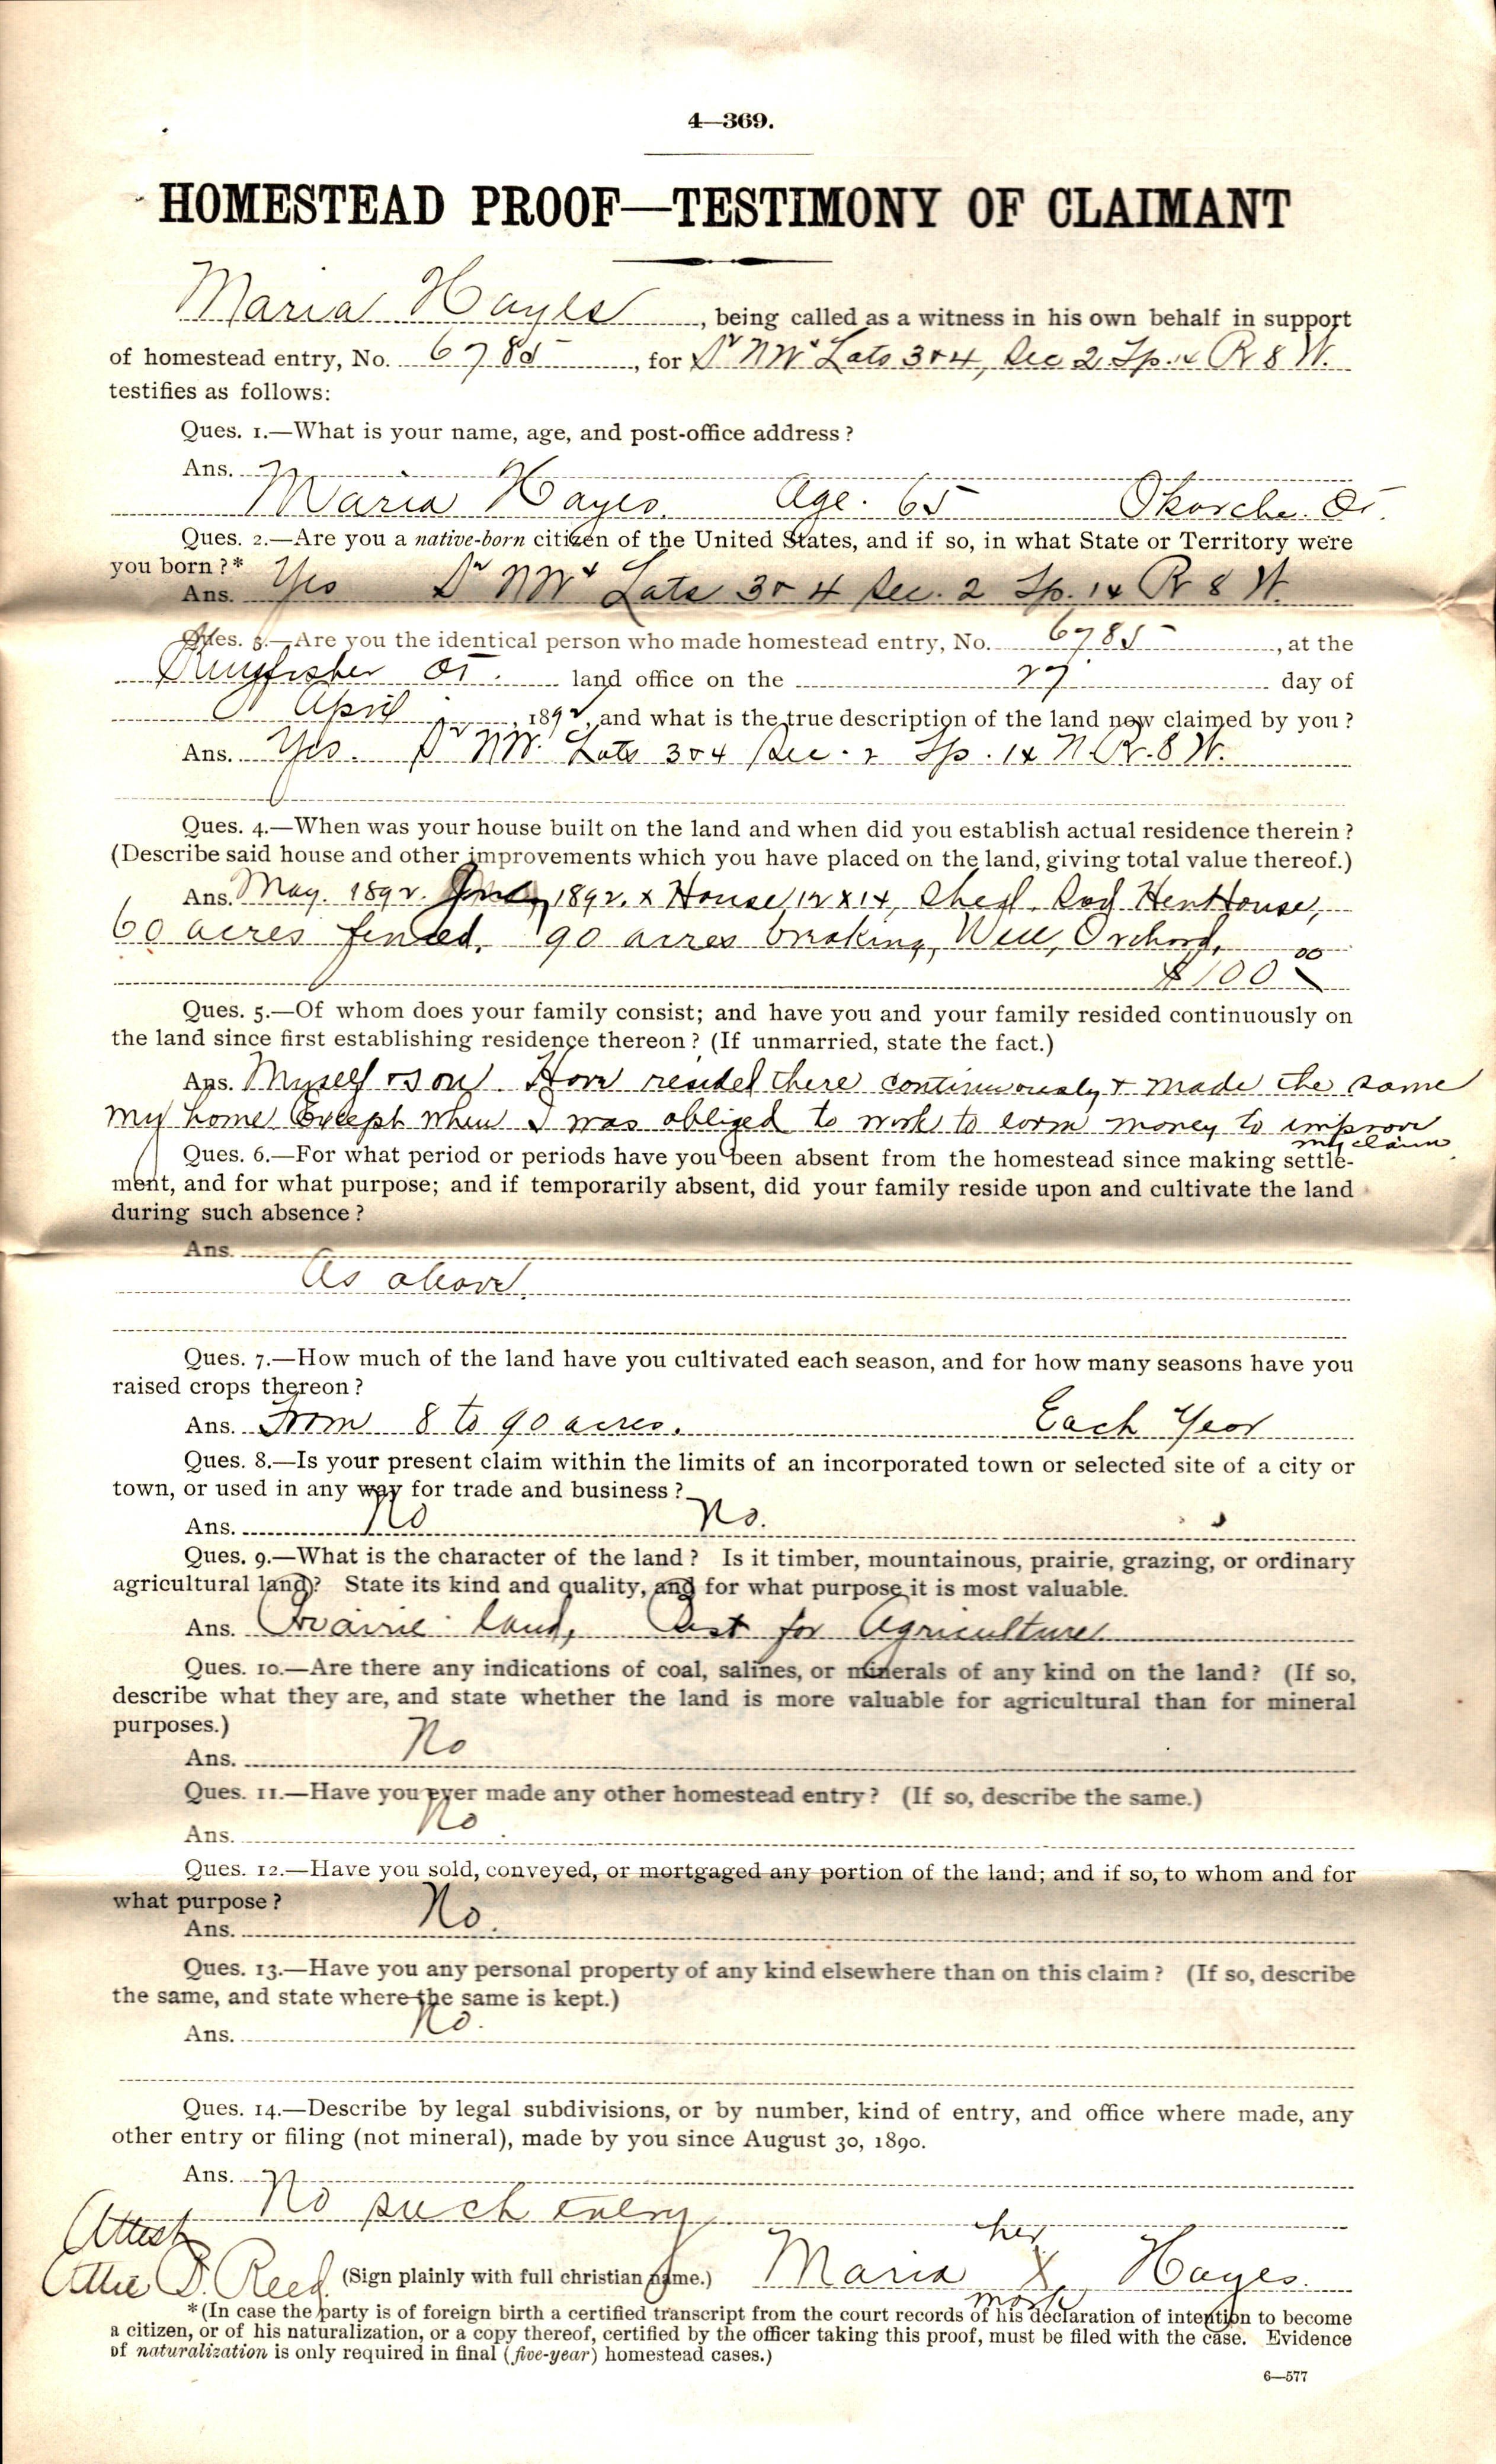 4—369.
HOMESTEAD PROOF—TESTIMONY OF CLAIMANT
Maria Hayes, being called as a witness in his own behalf in support
of homestead entry, No. 6785, for S² NW⁴ Lots 3 & 4, Sec 2 Tp. 14 R 8 W.
testifies as follows:
Ques. 1.—What is your name, age, and post-office address?
Ans.
Maria Hayes. Age. 65 Okarche. OT.
Ques. 2.—Are you a native-born citizen of the United States, and if so, in what State or Territory were
you born?*
Ans. Yes S² NW⁴ Lots 3 & 4 Sec. 2 Tp. 14 R 8 W.
Ques. 3.—Are you the identical person who made homestead entry, No. 6785, at the
Kingfisher OT. land office on the 27 day of
April, 1892, and what is the true description of the land now claimed by you?
Ans. Yes. S² NW. Lots 3 & 4 Sec. 2 Tp. 14 N. R. 8 W.
Ques. 4.—When was your house built on the land and when did you establish actual residence therein?
(Describe said house and other improvements which you have placed on the land, giving total value thereof.)
Ans. May. 1892. 1892. x House 12 x 14, Shed. Sod Hen House,
60 acres fenced, 90 acres breaking, Well, Orchard,
$100 00
Ques. 5.—Of whom does your family consist; and have you and your family resided continuously on
the land since first establishing residence thereon? (If unmarried, state the fact.)
Ans. Myself & son. Have resided there continuously & made the same
my home Except when I was obliged to work to earn money to improve
my claim
Ques. 6.—For what period or periods have you been absent from the homestead since making settle-
ment, and for what purpose; and if temporarily absent, did your family reside upon and cultivate the land
during such absence?
Ans.
As above.
Ques. 7.—How much of the land have you cultivated each season, and for how many seasons have you
raised crops thereon?
Ans. From 8 to 90 acres. Each Year
Ques. 8.—Is your present claim within the limits of an incorporated town or selected site of a city or
town, or used in any way for trade and business?
Ans. No No.
Ques. 9.—What is the character of the land? Is it timber, mountainous, prairie, grazing, or ordinary
agricultural land? State its kind and quality, and for what purpose it is most valuable.
Ans. Prairie land, Best for Agriculture
Ques. 10.—Are there any indications of coal, salines, or minerals of any kind on the land? (If so,
describe what they are, and state whether the land is more valuable for agricultural than for mineral
purposes.)
Ans. No
Ques. 11.—Have you ever made any other homestead entry? (If so, describe the same.)
Ans. No
Ques. 12.—Have you sold, conveyed, or mortgaged any portion of the land; and if so, to whom and for
what purpose?
Ans. No.
Ques. 13.—Have you any personal property of any kind elsewhere than on this claim? (If so, describe
the same, and state where the same is kept.)
Ans. No.
Ques. 14.—Describe by legal subdivisions, or by number, kind of entry, and office where made, any
other entry or filing (not mineral), made by you since August 30, 1890.
Ans.
No such entry
Attest
her
Attie B. Reed. (Sign plainly with full christian name.) Maria X Hayes.
mark
*(In case the party is of foreign birth a certified transcript from the court records of his declaration of intention to become
a citizen, or of his naturalization, or a copy thereof, certified by the officer taking this proof, must be filed with the case. Evidence
of naturalization is only required in final (five-year) homestead cases.)
6—577